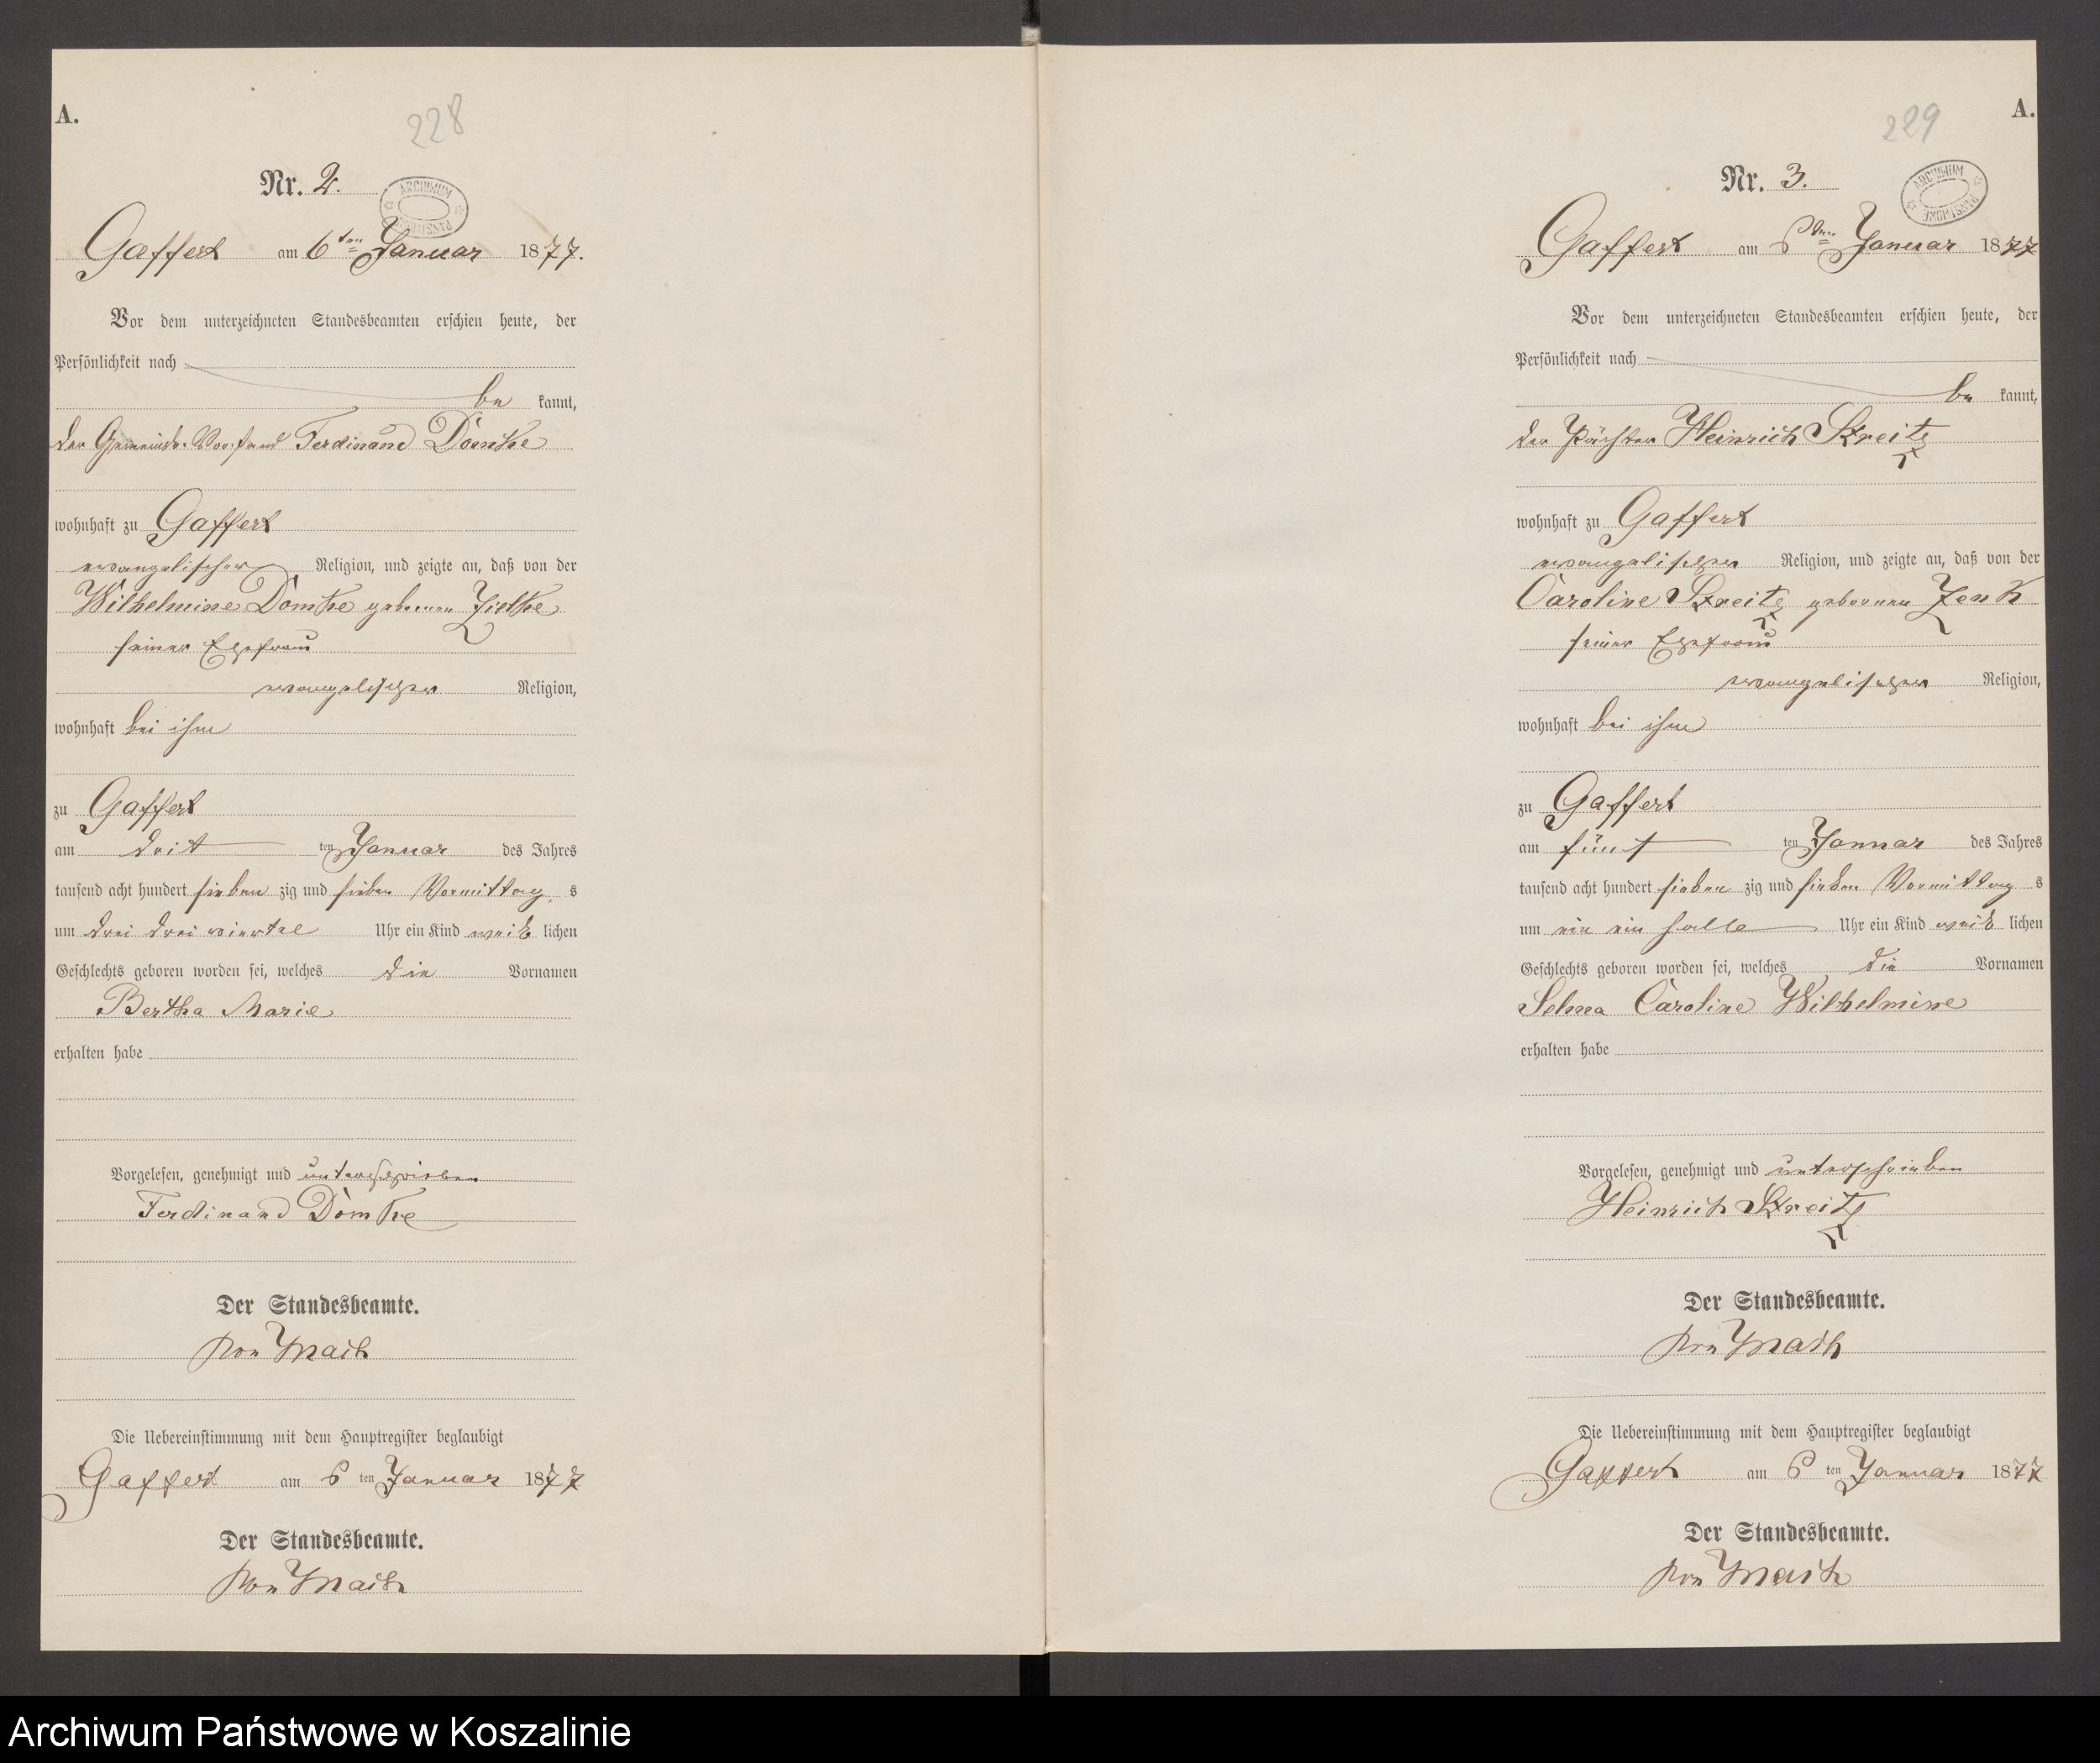 A.
228
Nr. 2.
ARCHIWUM PAŃSTWOWE
Gaffert am 6ten Januar 1877.
Vor dem unterzeichneten Standesbeamten erschien heute, der
Persönlichkeit nach
be kannt,
der Gemeinde-Vorstand Ferdinand Domke
wohnhaft zu Gaffert
evangelischer Religion, und zeigte an, daß von der
Wilhelmine Domke geborenen Zielke
seiner Ehefrau
evangelischer Religion,
wohnhaft bei ihm
zu Gaffert
am drit ten Januar des Jahres
tausend acht hundert sieben zig und sieben Vormittag s
um drei drei viertel Uhr ein Kind weib lichen
Geschlechts geboren worden sei, welches die Vornamen
Bertha Marie
erhalten habe
Vorgelesen, genehmigt und unterschrieben
Ferdinand Domke
Der Standesbeamte.
von
Die Uebereinstimmung mit dem Hauptregister beglaubigt
Gaffert am 6 ten Januar 1877
Der Standesbeamte.
von
A.
229
Nr. 3.
ARCHIWUM PAŃSTWOWE
Gaffert am 6ten Januar 1877
Vor dem unterzeichneten Standesbeamten erschien heute, der
Persönlichkeit nach
be kannt,
der Pächter Heinrich
wohnhaft zu Gaffert
evangelischer Religion, und zeigte an, daß von der
Caroline geborenen Zenk
seiner Ehefrau
evangelischer Religion,
wohnhaft bei ihm
zu Gaffert
am fünf ten Januar des Jahres
tausend acht hundert sieben zig und sieben Vormittag s
um ein ein halb Uhr ein Kind weib lichen
Geschlechts geboren worden sei, welches die Vornamen
Selma Caroline Wilhelmine
erhalten habe
Vorgelesen, genehmigt und unterschrieben
Heinrich
Der Standesbeamte.
von
Die Uebereinstimmung mit dem Hauptregister beglaubigt
Gaffert am 6 ten Januar 1877
Der Standesbeamte.
von
Archiwum Państwowe w Koszalinie